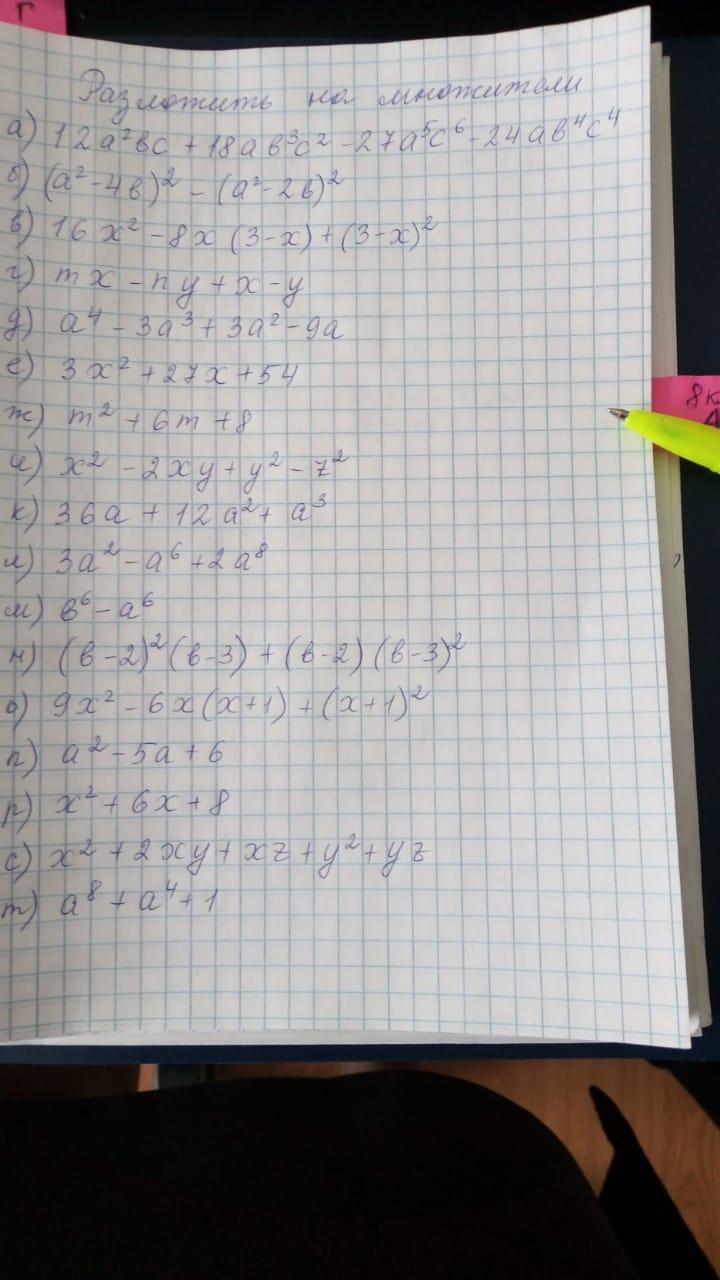 г
Разложить на множители
а) 12a²bc + 18ab³c² - 27a⁵c⁶ - 24ab⁴c⁴
б) (a² - 4b)² - (a² - 2b)²
в) 16x² - 8x (3-x) + (3-x)²
г) mx - ny + x - y
д) a⁴ - 3a³ + 3a² - 9a
е) 3x² + 27x + 54
8к
ж) m² + 6m + 8
и) x² - 2xy + y² - z²
к) 36a + 12a² + a³
л) 3a² - a⁶ + 2a⁸
м) b⁶ - a⁶
н) (b-2)²(b-3) + (b-2)(b-3)²
о) 9x² - 6x(x+1) + (x+1)²
п) a² - 5a + 6
р) x² + 6x + 8
с) x² + 2xy + xz + y² + yz
т) a⁸ + a⁴ + 1